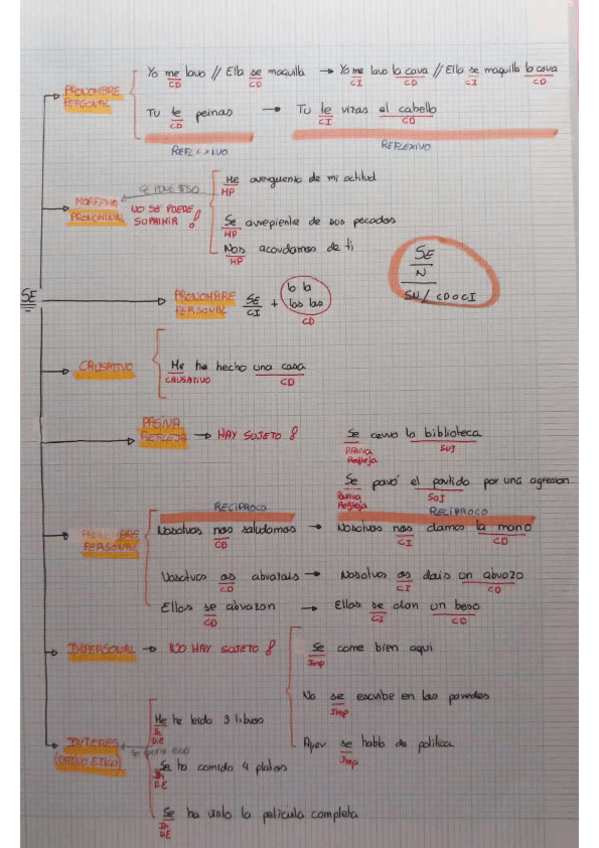 Yo me lavo // Ella se maquilla → Yo me lavo la cara // Ella se maquilla la cara
CD CD CI CD CI CD
PRONOMBRE
PERSONAL
Tu te peinas → Tu te rizas el cabello
CD CI CD
REFLEXIVO REFLEXIVO
Me averguento de mi actitud
MP
SE PONE ESO
MORFEMA
PRONOMINAL
NO SE PUEDE
SUPRIMIR !
Se arrepiente de sus pecados
MP
Nos acordamos de ti
MP
SE
N
SN / CD o CI
SE
PRONOMBRE
PERSONAL
SE + lo la
CI los las
CD
CAUSATIVO
Me he hecho una casa
CAUSATIVO CD
PASIVA
REFLEJA → HAY SUJETO !
Se cerró la biblioteca
Pasiva SUJ
Refleja
Se paró el partido por una agresion
Pasiva SUJ
Refleja
RECIPROCO RECIPROCO
PRONOMBRE
PERSONAL
Nosotros nos saludamos → Nosotros nos damos la mano
CD CI CD
Vosotros os abrazais → Nosotros os dais un abrazo
CD CI CD
Ellos se abrazan → Ellos se dan un beso
CD CI CD
IMPERSONAL → NO HAY SUJETO !
Se come bien aqui
Imp
No se escribe en las paredes
Imp
Ayer se habló de politica
Imp
INTERES
(DATIVO ETICO)
SE PONE ESO
Me he leido 3 libros
In
D.E
Se ha comido 4 platos
In
D.E
Se ha visto la pelicula completa
In
D.E